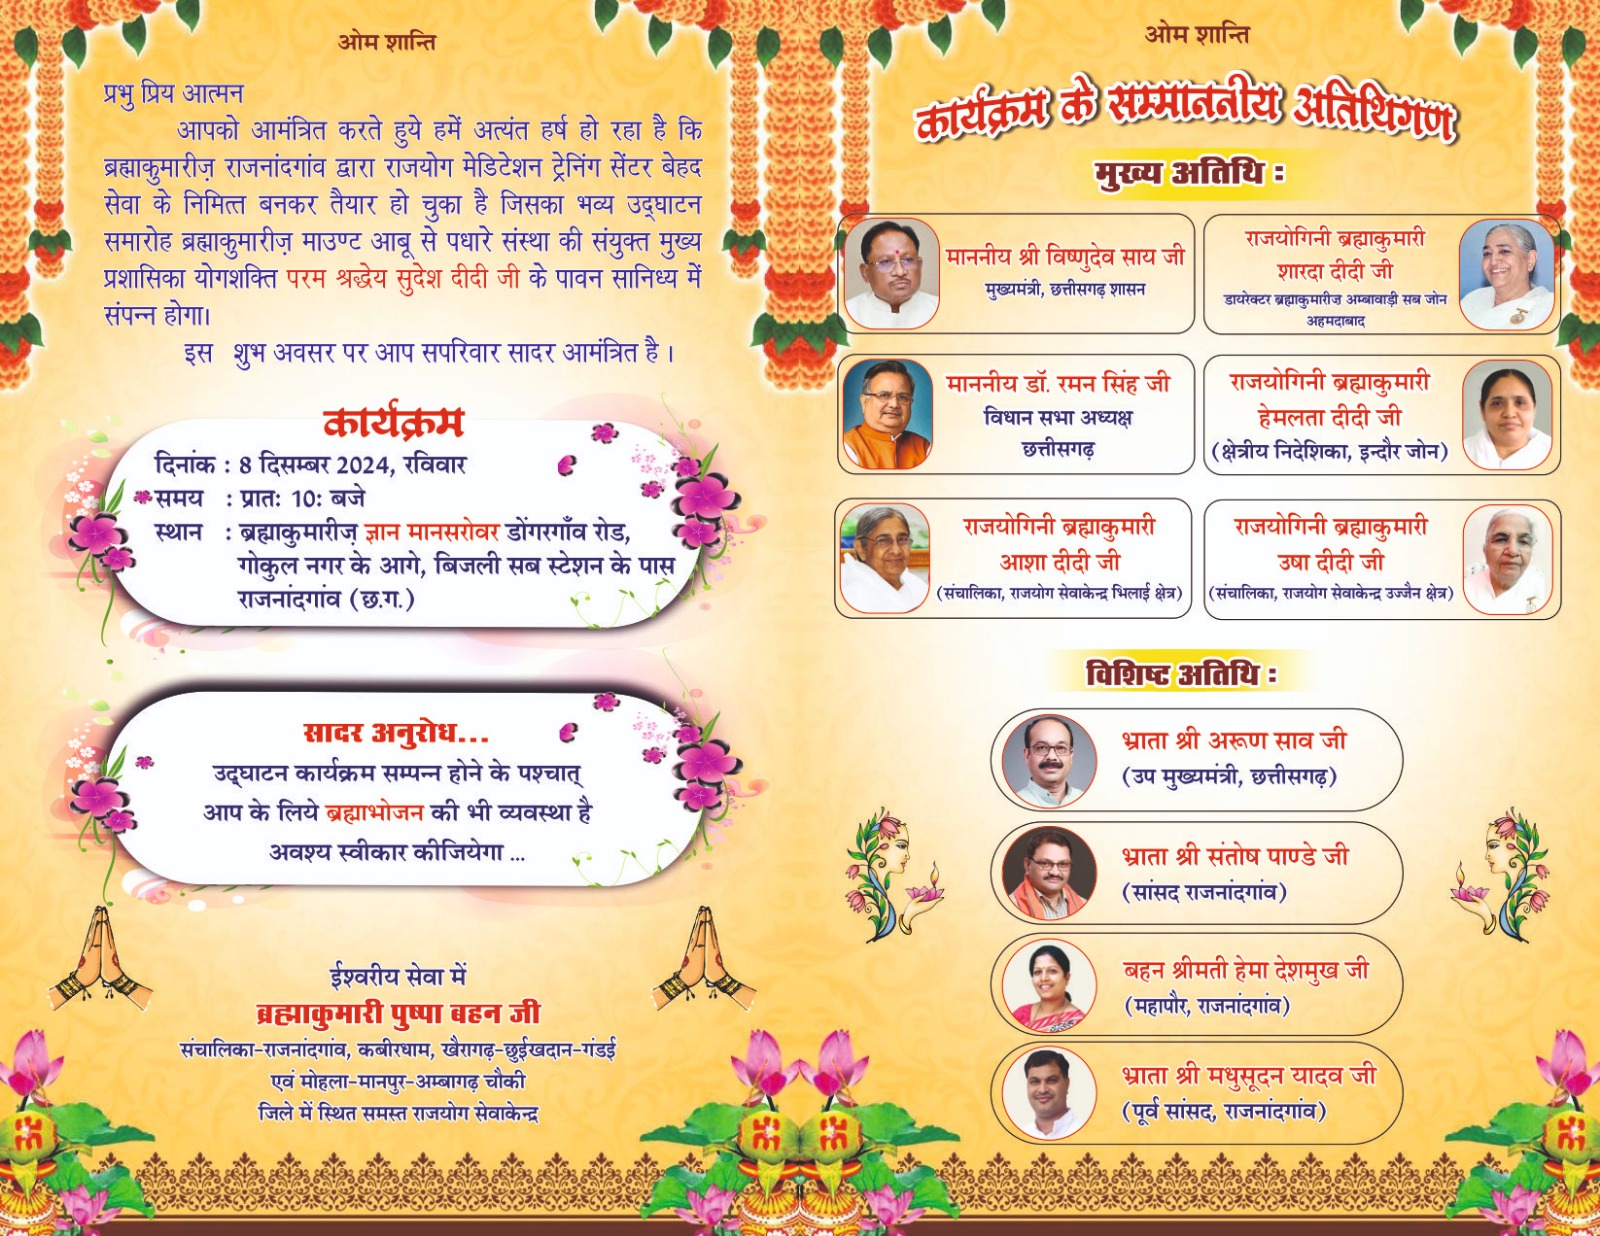 ओम शान्ति
प्रभु प्रिय आत्मन
आपको आमंत्रित करते हुये हमें अत्यंत हर्ष हो रहा है कि
ब्रह्माकुमारीज़ राजनांदगांव द्वारा राजयोग मेडिटेशन ट्रेनिंग सेंटर बेहद
सेवा के निमित्त बनकर तैयार हो चुका है जिसका भव्य उद्घाटन
समारोह ब्रह्माकुमारीज़ माउण्ट आबू से पधारे संस्था की संयुक्त मुख्य
प्रशासिका योगशक्ति परम श्रद्धेय सुदेश दीदी जी के पावन सानिध्य में
संपन्न होगा।
इस शुभ अवसर पर आप सपरिवार सादर आमंत्रित है ।
कार्यक्रम
दिनांक : 8 दिसम्बर 2024, रविवार
समय : प्रातः 10ः बजे
स्थान : ब्रह्माकुमारीज़ ज्ञान मानसरोवर डोंगरगाँव रोड,
गोकुल नगर के आगे, बिजली सब स्टेशन के पास
राजनांदगांव (छ.ग.)
सादर अनुरोध...
उद्घाटन कार्यक्रम सम्पन्न होने के पश्चात्
आप के लिये ब्रह्माभोजन की भी व्यवस्था है
अवश्य स्वीकार कीजियेगा ...
ईश्वरीय सेवा में
ब्रह्माकुमारी पुष्पा बहन जी
संचालिका-राजनांदगांव, कबीरधाम, खैरागढ़-छुईखदान-गंडई
एवं मोहला-मानपुर-अम्बागढ़ चौकी
जिले में स्थित समस्त राजयोग सेवाकेन्द्र
ओम शान्ति
कार्यक्रम के सम्माननीय अतिथिगण
मुख्य अतिथि :
माननीय श्री विष्णुदेव साय जी
मुख्यमंत्री, छत्तीसगढ़ शासन
राजयोगिनी ब्रह्माकुमारी
शारदा दीदी जी
डायरेक्टर ब्रह्माकुमारीज़ अम्बावाड़ी सब जोन
अहमदाबाद
माननीय डॉ. रमन सिंह जी
विधान सभा अध्यक्ष
छत्तीसगढ़
राजयोगिनी ब्रह्माकुमारी
हेमलता दीदी जी
(क्षेत्रीय निदेशिका, इन्दौर जोन)
राजयोगिनी ब्रह्माकुमारी
आशा दीदी जी
(संचालिका, राजयोग सेवाकेन्द्र भिलाई क्षेत्र)
राजयोगिनी ब्रह्माकुमारी
उषा दीदी जी
(संचालिका, राजयोग सेवाकेन्द्र उज्जैन क्षेत्र)
विशिष्ट अतिथि :
भ्राता श्री अरूण साव जी
(उप मुख्यमंत्री, छत्तीसगढ़)
भ्राता श्री संतोष पाण्डे जी
(सांसद राजनांदगांव)
बहन श्रीमती हेमा देशमुख जी
(महापौर, राजनांदगांव)
भ्राता श्री मधुसूदन यादव जी
(पूर्व सांसद, राजनांदगांव)